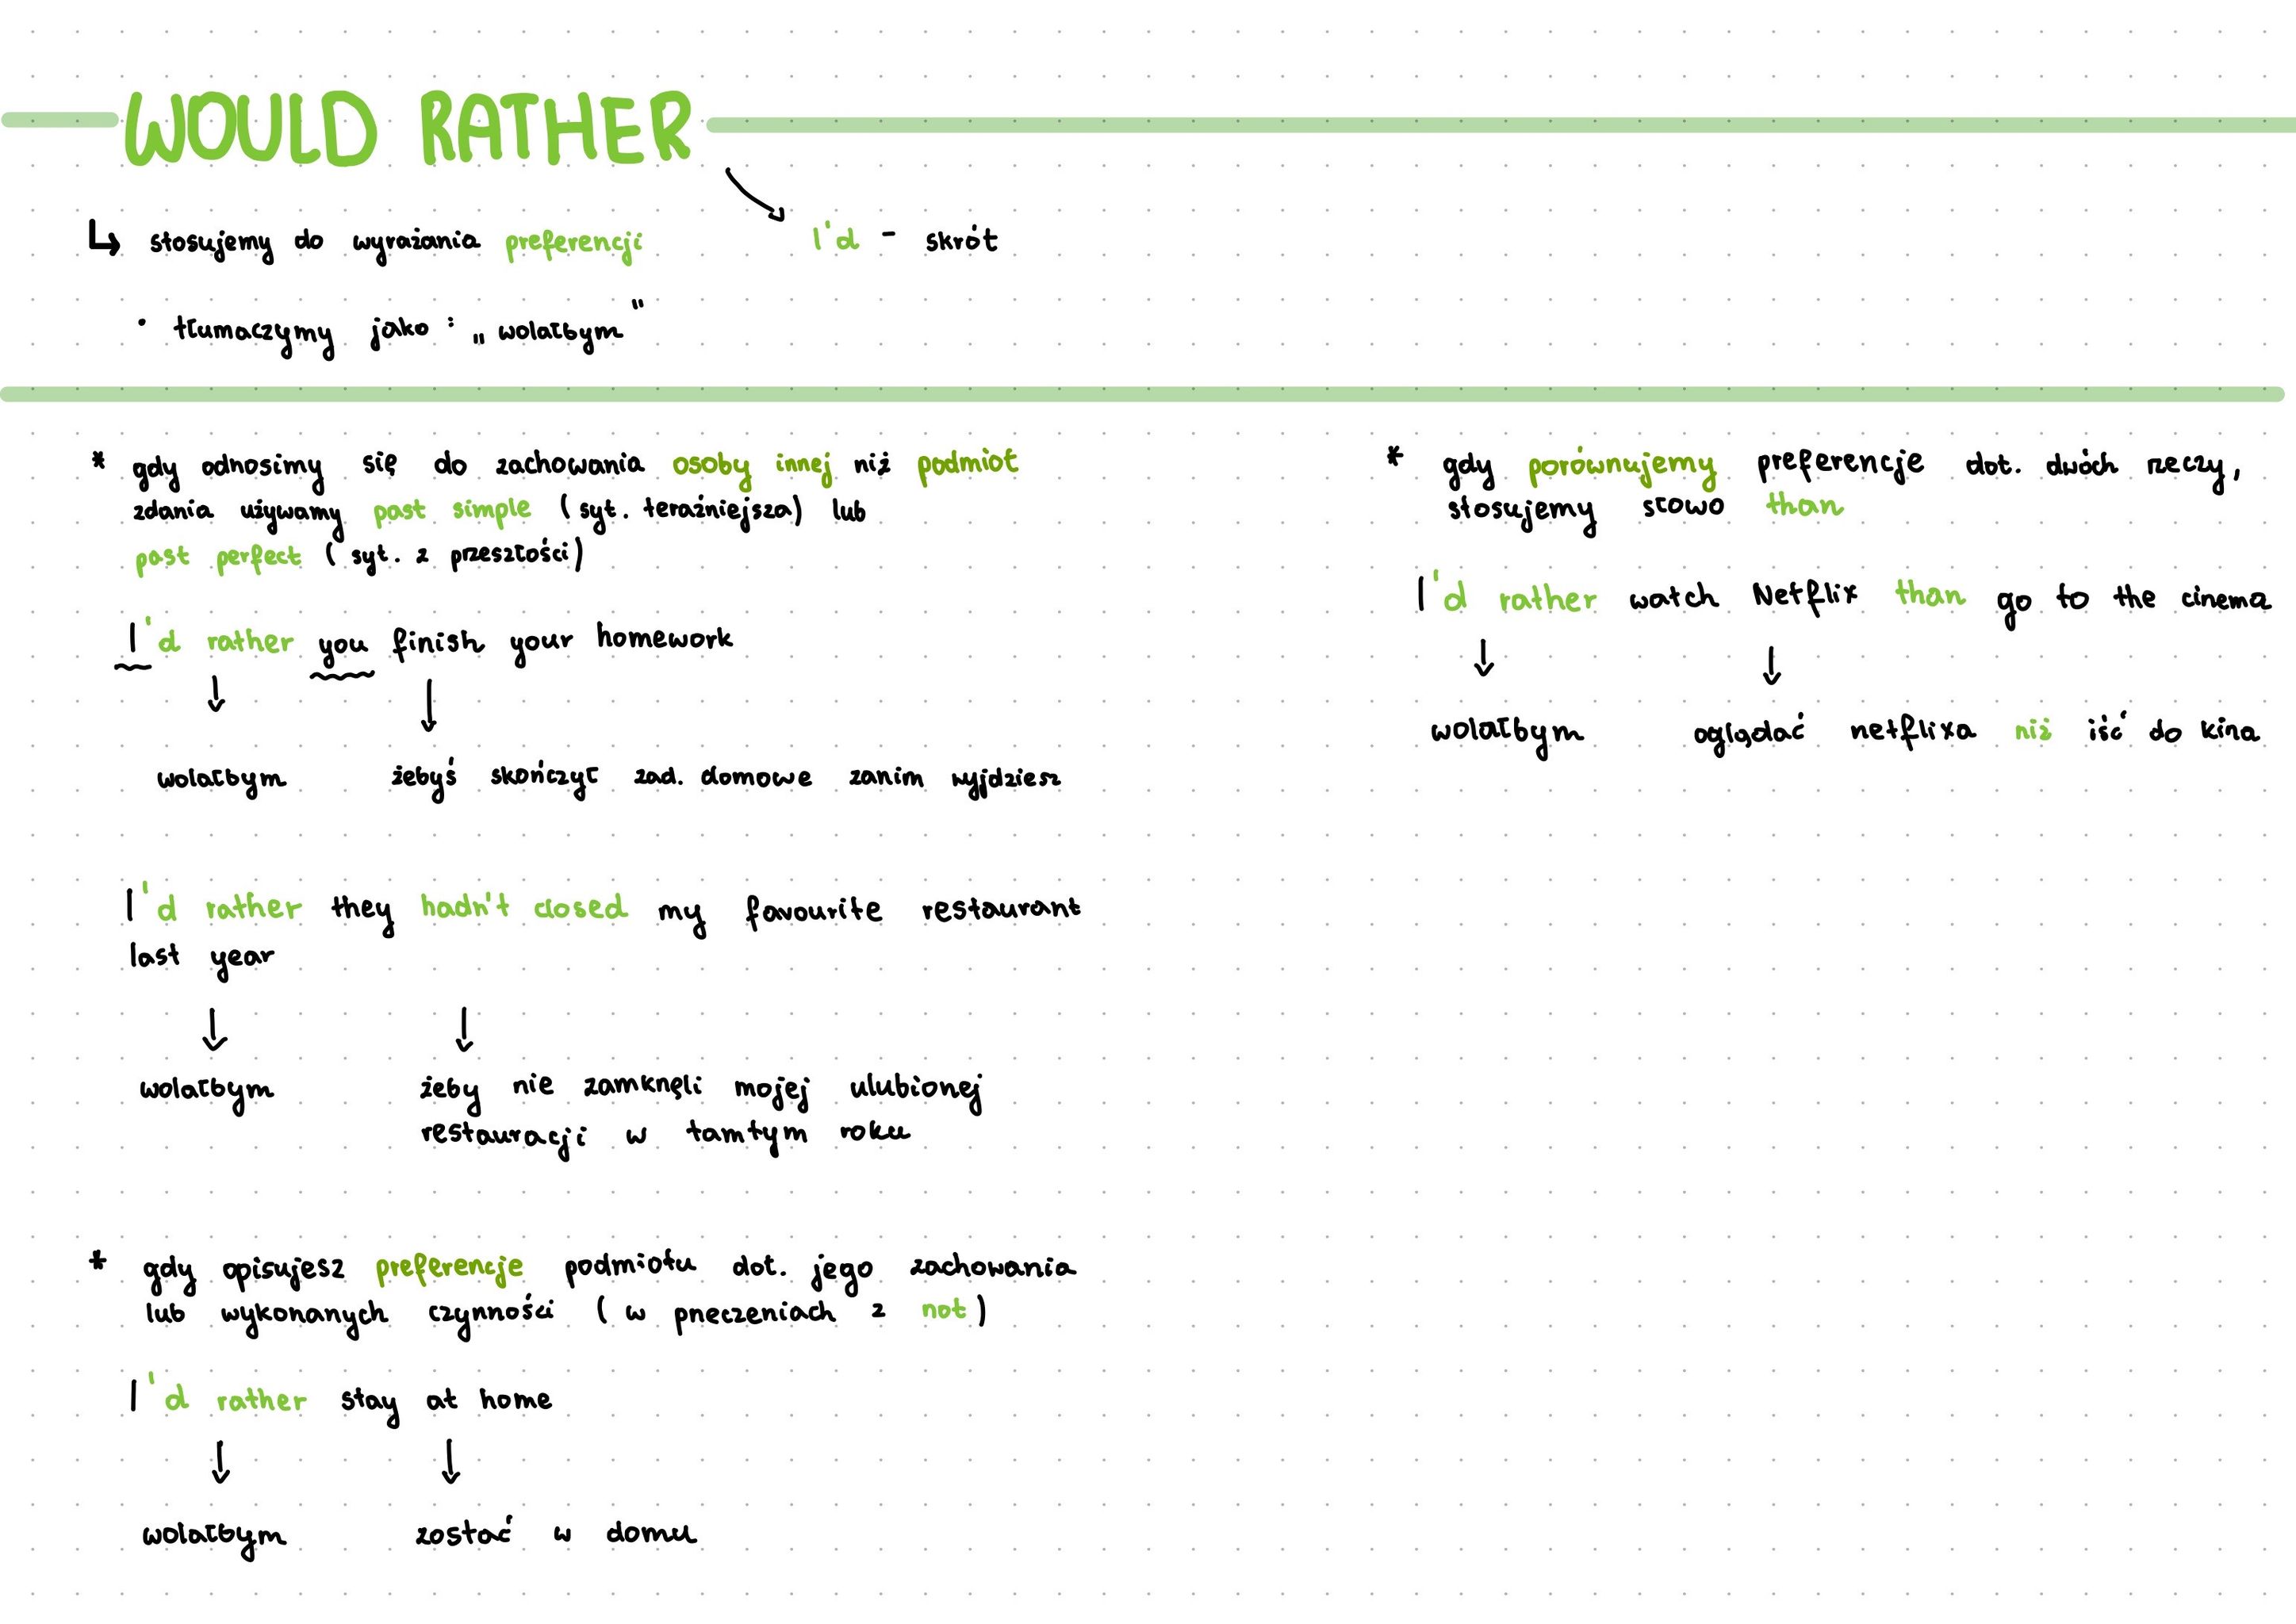 WOULD RATHER
↳ stosujemy do wyrażania preferencji
I'd - skrót
• tłumaczymy jako: „wolałbym"
* gdy odnosimy się do zachowania osoby innej niż podmiot
zdania używamy past simple (syt. teraźniejsza) lub
past perfect (syt. z przeszłości)
I'd rather you finish your homework
wolałbym żebyś skończył zad. domowe zanim wyjdziesz
I'd rather they hadn't closed my favourite restaurant
last year
wolałbym żeby nie zamknęli mojej ulubionej
restauracji w tamtym roku
* gdy opisujesz preferencje podmiotu dot. jego zachowania
lub wykonanych czynności (w przeczeniach z not)
I'd rather stay at home
wolałbym zostać w domu
* gdy porównujemy preferencje dot. dwóch rzeczy,
stosujemy słowo than
I'd rather watch Netflix than go to the cinema
wolałbym oglądać netflixa niż iść do kina